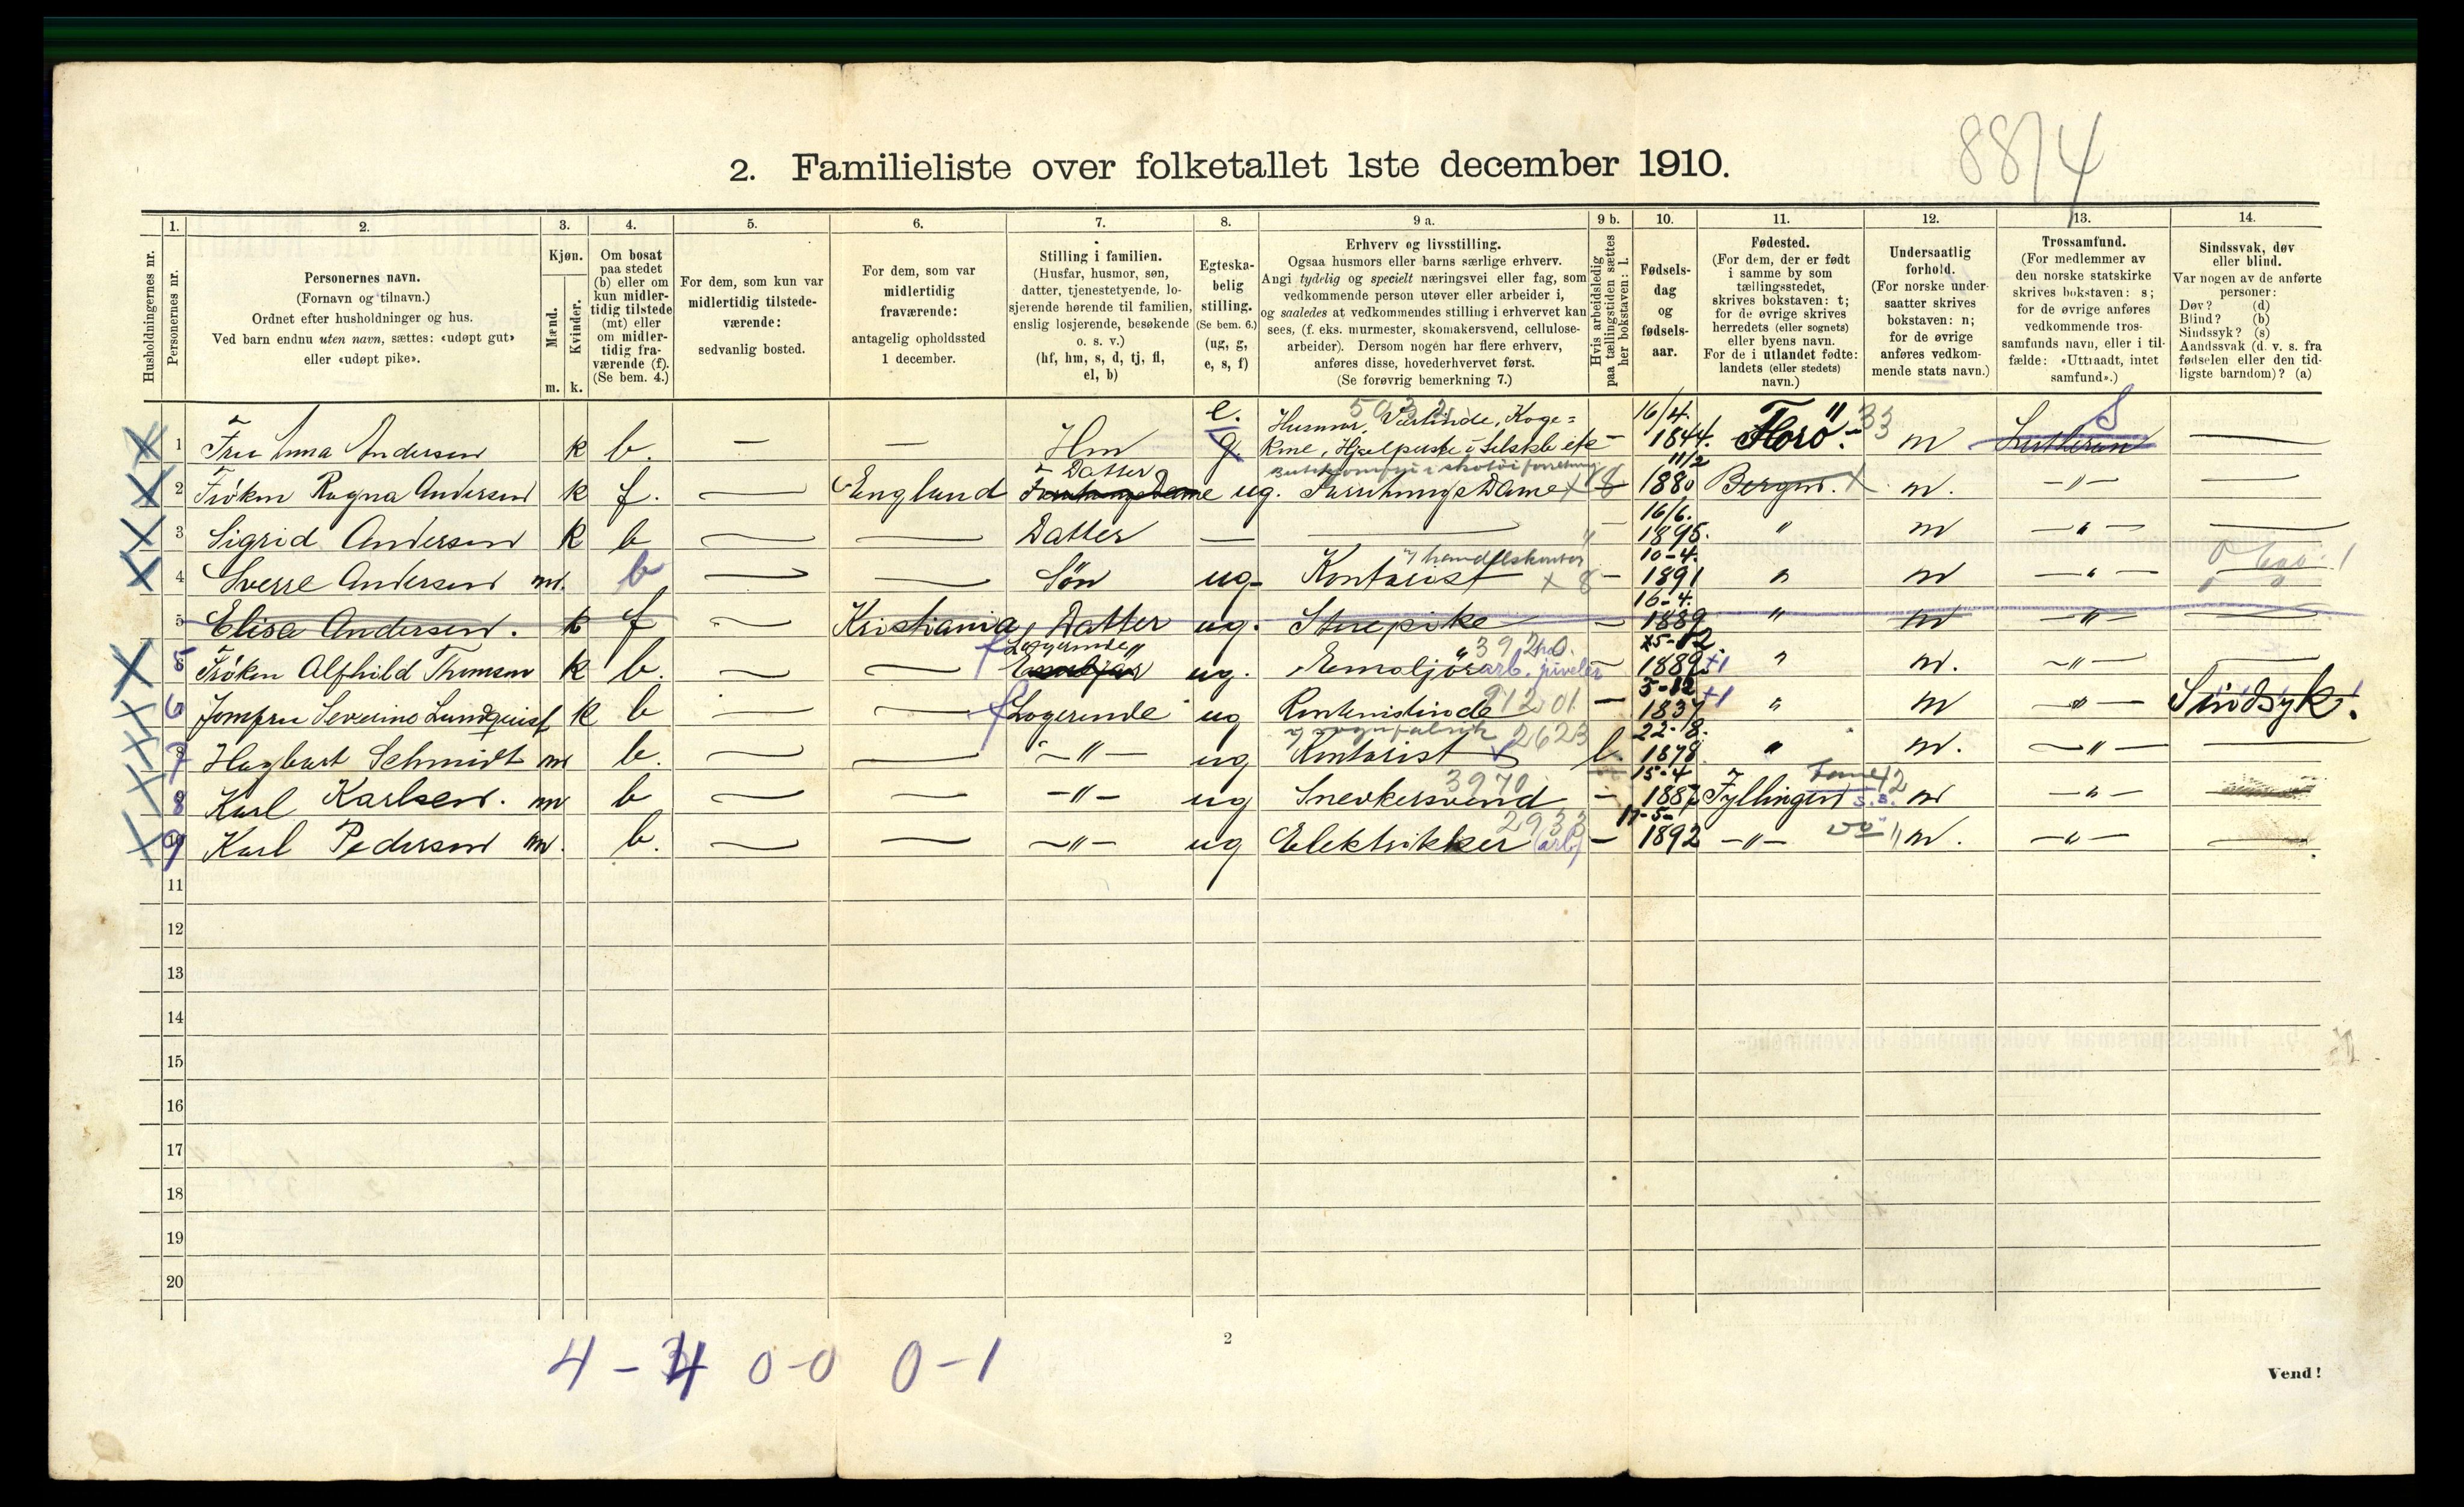 88/4
2. Familieliste over folketallet 1ste december 1910.
1. 2. 3. 4. 5. 6. 7. 8. 9 a. 9 b. 10. 11. 12. 13. 14.
Husholdningernes nr.
Personernes nr.
Personernes navn.
(Fornavn og tilnavn.)
Ordnet efter husholdninger og hus.
Ved barn endnu uten navn, sættes: «udøpt gut»
eller «udøpt pike».
Kjøn.
Mænd.
Kvinder.
m. k.
Om bosat
paa stedet
(b) eller om
kun midler-
tidig tilstede
(mt) eller
om midler-
tidig fra-
værende (f).
(Se bem. 4.)
For dem, som kun var
midlertidig tilstede-
værende:
sedvanlig bosted.
For dem, som var
midlertidig
fraværende:
antagelig opholdssted
1 december.
Stilling i familien.
(Husfar, husmor, søn,
datter, tjenestetyende, lo-
sjerende hørende til familien,
enslig losjerende, besøkende
o. s. v.)
(hf, hm, s, d, tj, fl,
el, b)
Egteska-
belig
stilling.
(Se bem. 6.)
(ug, g,
e, s, f)
Erhverv og livsstilling.
Ogsaa husmors eller barns særlige erhverv.
Angi tydelig og specielt næringsvei eller fag, som
vedkommende person utøver eller arbeider i,
og saaledes at vedkommendes stilling i erhvervet kan
sees, (f. eks. murmester, skomakersvend, cellulose-
arbeider). Dersom nogen har flere erhverv,
anføres disse, hovederhvervet først.
(Se forøvrig bemerkning 7.)
Hvis arbeidsledig
paa tællingstiden sættes
her bokstaven: l.
Fødsels-
dag
og
fødsels-
aar.
Fødested.
(For dem, der er født
i samme by som
tællingsstedet,
skrives bokstaven: t;
for de øvrige skrives
herredets (eller sognets)
eller byens navn.
For de i utlandet fødte:
landets (eller stedets)
navn.)
Undersaatlig
forhold.
(For norske under-
saatter skrives
bokstaven: n;
for de øvrige
anføres vedkom-
mende stats navn.)
Trossamfund.
(For medlemmer av
den norske statskirke
skrives bokstaven: s;
for de øvrige anføres
vedkommende tros-
samfunds navn, eller i til-
fælde: «Uttraadt, intet
samfund».)
Sindssvak, døv
eller blind.
Var nogen av de anførte
personer:
Døv? (d)
Blind? (b)
Sindssyk? (s)
Aandssvak (d. v. s. fra
fødselen eller den tid-
ligste barndom)? (a)
e. Husmor, Værtinde, Koge= 16/4. 33 S
1 Fru Anna Andersen k b. — — Hm g. kone, Hjælper i Selskb etc — 1844. Florö. n Lutheran —
Datter 11/2
2 Frøken Ragna Andersen k f. — England ug. Forretningsdame x 8 1880 Bergen. x n. —"— —
16/6.
3 Sigrid Andersen k b — — Datter — — — 1895. " n —"— —
i handelskontor 10-4.
4 Sverre Andersen m. b — — Sön ug. Kontorist x 8 — 1891 " n —"—
16-4.
5 Elisa Andersen. k f — Kristiania Datter ug. Stuepike — 1889 " n —"— —
Logerende 39,200. 25-12.
5 Frøken Alfhild Thomsen k b. — — ug. Emaljör arb. juveler — 1889 +1 " n. —"— —
01 5-12
6 Jomfru Severine Lundquist k b — — Logerende ug Rentenistinde — 1837 +1 " n —"— Sindsyk.
2623 22-8.
7 Hagbart Schmidt m b. — — —"— ug Kontorist l. 1878. " n. —"— —
3970 15-4 42
8 Karl Karlsen. m b — — —"— ug Snekkersvend — 1887 Fyllingen s.B. n —"—
2933 17-5-
9 Karl Pedersen m. b. — — —"— ug Elektrikker (arb) — 1892 —"— do " n. —"— —
11
12
13
14
15
16
17
18
19
20
2
4 - 4 0-0 0-1
Vend!